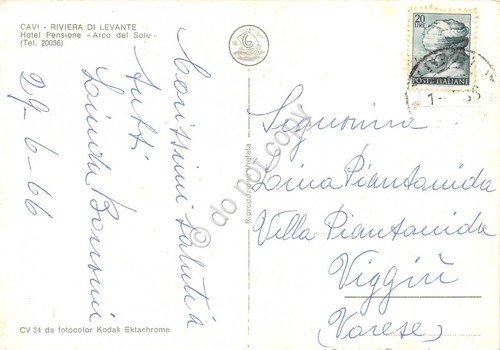 CAVI - RIVIERA DI LEVANTE
Hotel Pensione «Arco del Sole»
(Tel. 20036)
Carissimi saluti a
tutti
Linda
29-6-66
CV 24 da fotocolor Kodak Ektachrome
Riproduzione vietata
20
LIRE
POSTE ITALIANE
Signorina
Lina Piantanida
Villa Piantanida
Viggiù
(Varese)
do not copy